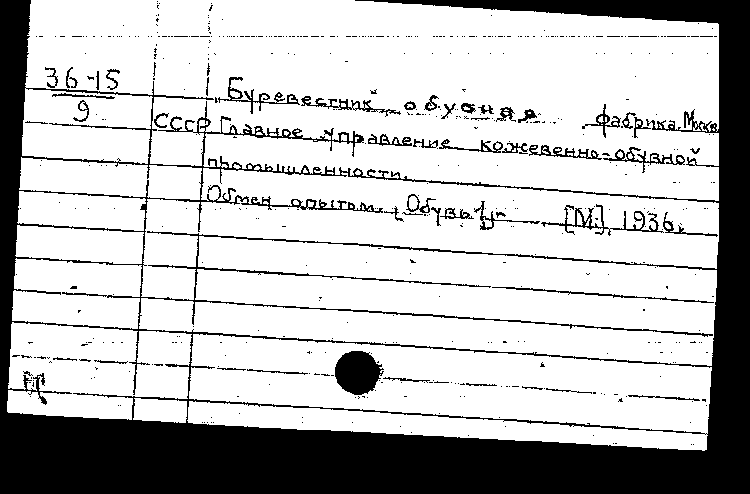 36-15
9
„Буревестник" обувная фабрика. Москва
СССР Главное управление кожевенно-обувной
промышленности.
Обмен опытом. [Обувь]. [М.], 1936.